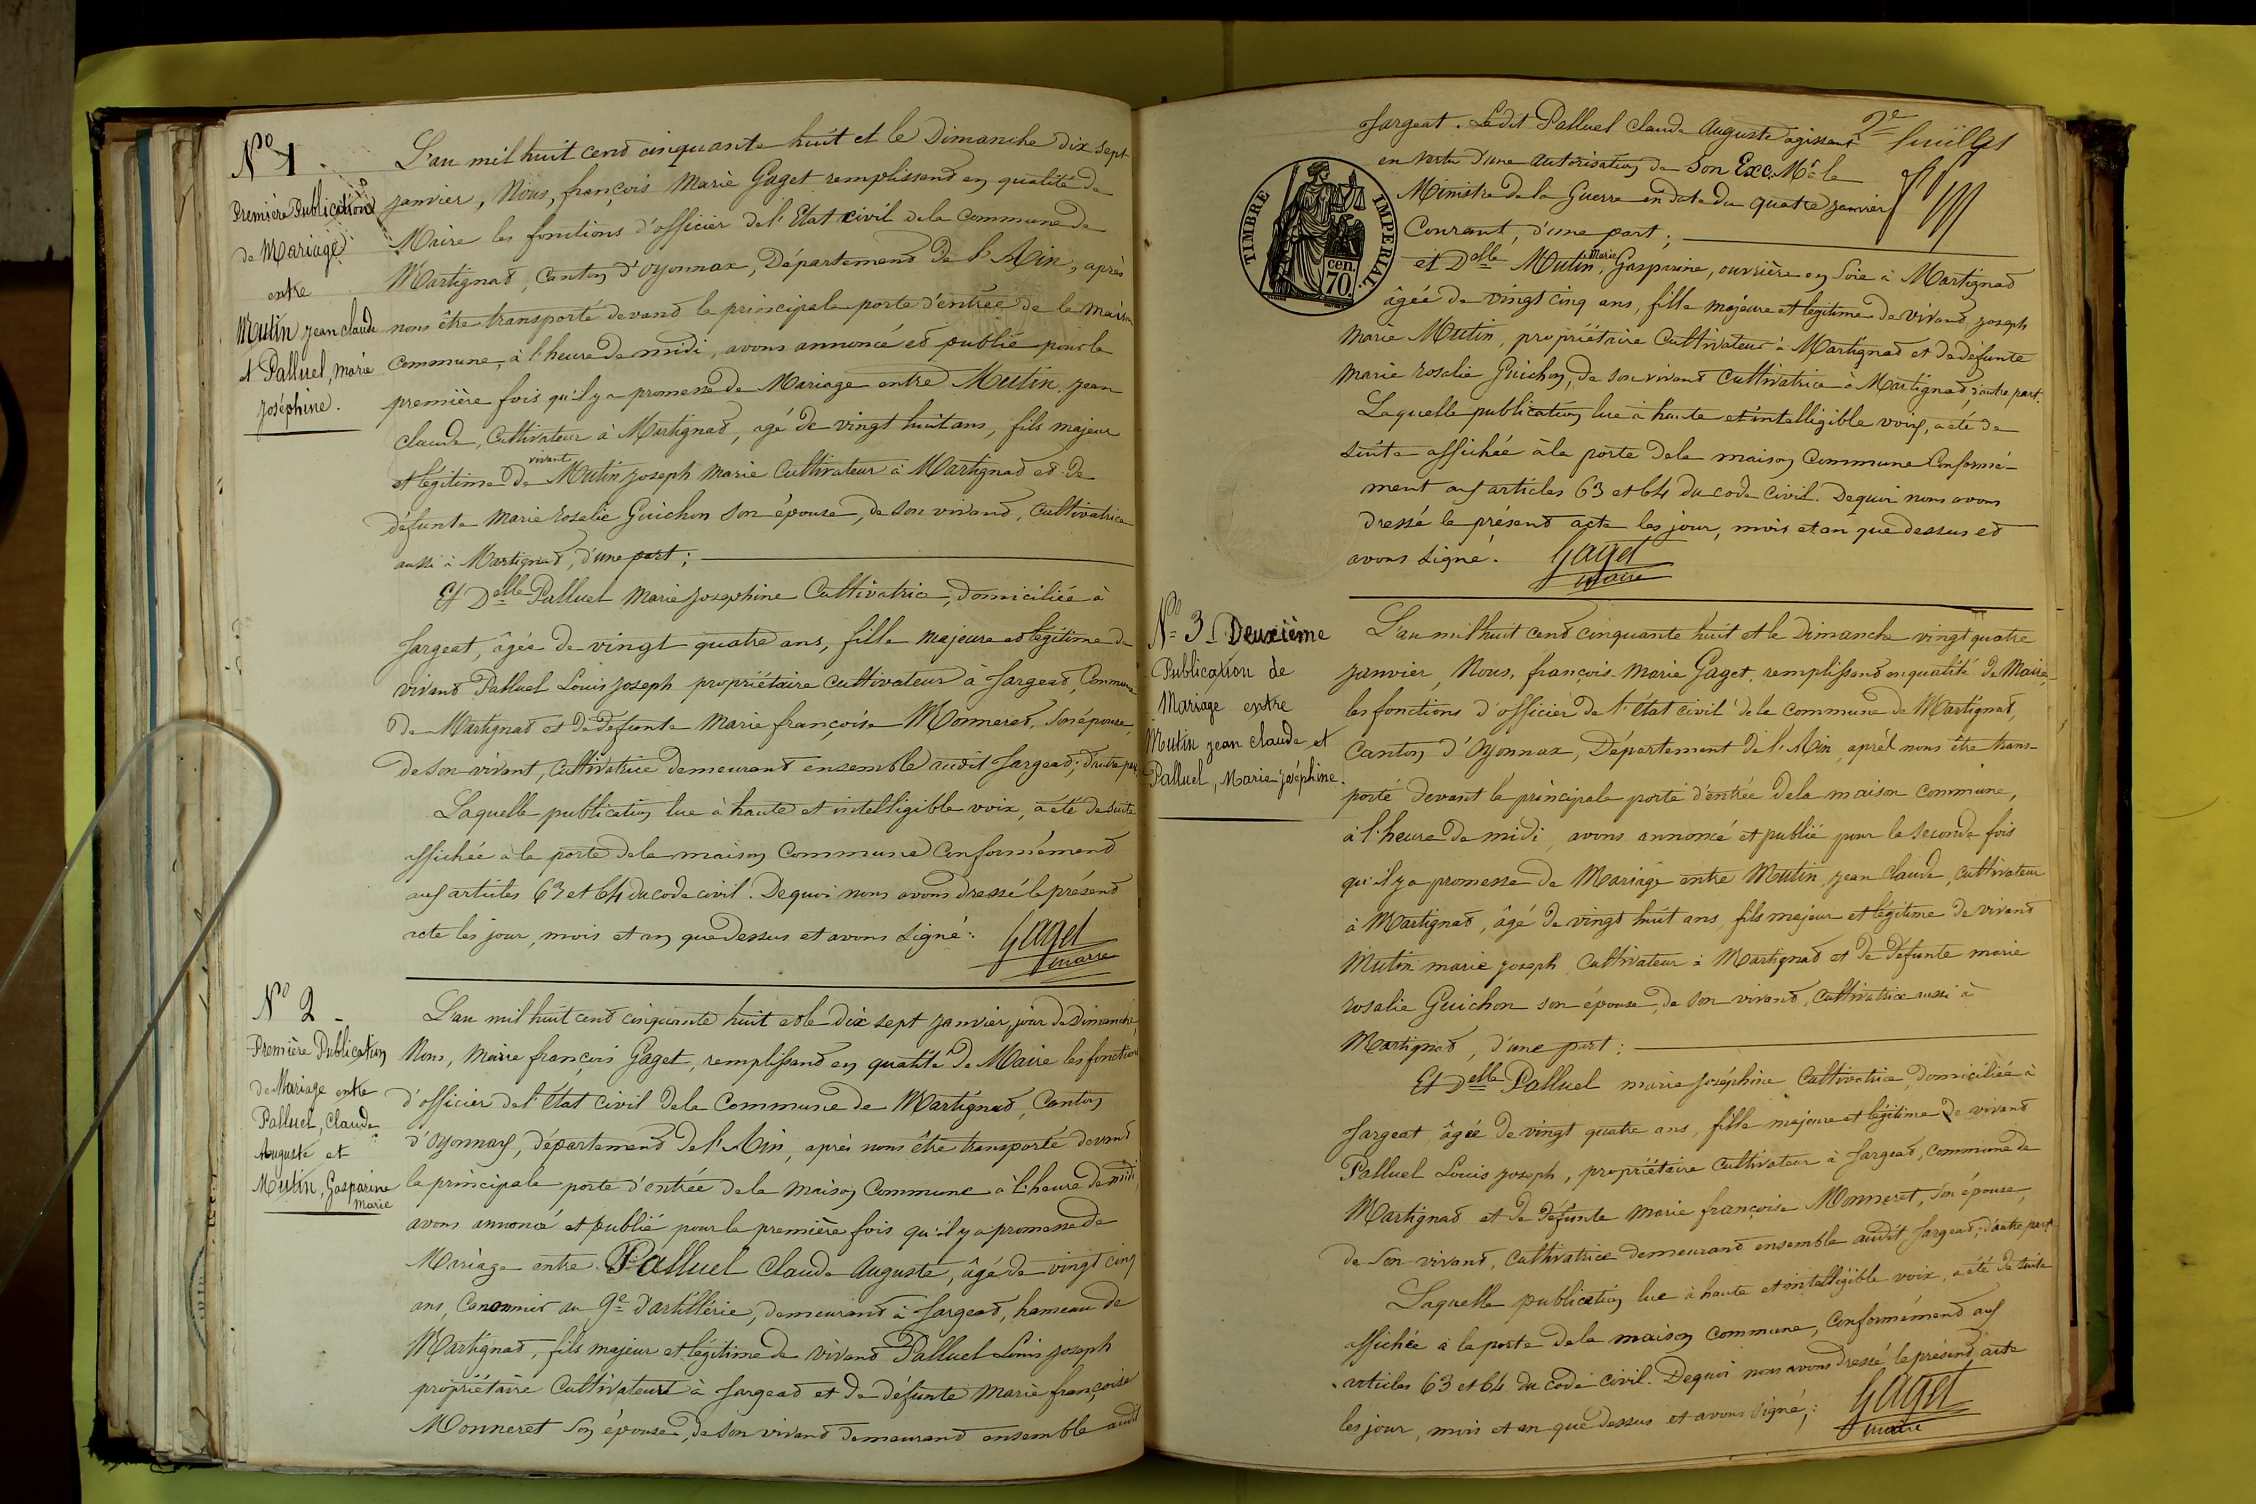 N° 1
Première Publication
de Mariage
entre
Mutin jean claude
et Palluel, marie
joséphine.
L'an mil huit cent cinquante huit et le Dimanche dix sept
janvier, Nous, françois Marie Gaget remplissant en qualité de
Maire les fonctions d'officier de l'Etat civil de la Commune de
Martignat, Canton d'Oyonnax, Département de l'Ain, après
nous être transporté devant la principale porte d'entrée de la Maison
Commune, à l'heure de midi, avons annoncé et publié pour la
première fois qu'il y a promesse de Mariage entre Mutin jean
claude, Cultivateur à Martignat, agé de vingt huit ans, fils majeur
et légitime de vivant Mutin joseph marie Cultivateur à Martignat et de
défunte Marie rosalie Guichon son épouse, de son vivant, Cultivatrice
aussi à Martignat, d'une part;
Et Delle Palluel Marie josephine Cultivatrice, domiciliée à
Jargeat, âgée de vingt quatre ans, fille majeure et légitime de
vivant Palluel Louis joseph propriétaire cultivateur à Jargeat, Commune
de Martignat et de défunte Marie françoise Monneret, son épouse,
de son vivant, Cultivatrice demeurant ensemble audit Jargeat; d'autre part
Laquelle publication lue à haute et intelligible voix, a été de suite
affichée à la porte de la maison Commune Conformément
aux articles 63 et 64 du code civil. De quoi nous avons dressé le présent
acte les jour, mois et an que dessus et avons signé:
Gaget
maire
N° 2
Première Publication
de Mariage entre
Palluel, Claude
Auguste et
Mutin, Gasparine
Marie
L'an mil huit cent cinquante huit et le dix sept janvier, jour de Dimanche,
Nous, Marie françois Gaget, remplissant en qualité de Maire les fonctions
d'officier de l'état civil de la Commune de Martignat, Canton
d'Oyonnax, département de l'Ain, après nous être transporté devant
la principale porte d'entrée de la Maison Commune à l'heure de midi,
avons annoncé et publié pour la première fois qu'il y a promesse de
Mariage entre Palluel Claude Auguste, âgé de vingt cinq
ans, Canonnier au 9e d'artillerie, demeurant à Jargeat, hameau de
Martignat, fils majeur et légitime de vivant Palluel Louis joseph
propriétaire Cultivateur à Jargeat et de défunte Marie françoise
Monneret son épouse, de son vivant demeurant ensemble audit
2e feuillet
Jargeat. Ledit Palluel claude Auguste agissant
en vertu d'une autorisation de Son Exc. Mr le
Ministre de la Guerre en date du quatre janvier
Courant, d'une part;
TIMBRE IMPERIAL.
cen.
70.
et Delle Mutin, Marie Gasparine, ouvrière en soie à Martignat
âgée de vingt cinq ans, fille majeure et légitime de vivant joseph
Marie Mutin, propriétaire Cultivateur à Martignat et de défunte
Marie rosalie Guichon, de son vivant Cultivatrice à Martignat, d'autre part.
Laquelle publication lue à haute et intelligible voix, a été de
suite affichée à la porte de la maison Commune Conformé-
ment aux articles 63 et 64 du code civil. De quoi nous avons
dressé le présent acte les jour, mois et an que dessus et
avons signé.
Gaget
maire
N° 3. Deuxième
Publication de
Mariage entre
Mutin jean claude, et
Palluel, Marie joséphine.
L'an mil huit cent cinquante huit et le Dimanche vingt quatre
janvier, Nous, françois Marie Gaget, remplissant en qualité de Maire,
les fonctions d'officier de l'état civil de la commune de Martignat,
Canton d'Oyonnax, Département de l'Ain, après nous être trans-
porté devant la principale porte d'entrée de la maison commune,
à l'heure de midi, avons annoncé et publié pour la seconde fois
qu'il y a promesse de Mariage entre Mutin jean claude, cultivateur
à Martignat, âgé de vingt huit ans, fils majeur et légitime de vivant
Mutin marie joseph, Cultivateur à Martignat et de défunte marie
rosalie Guichon son épouse, de son vivant, Cultivatrice aussi à
Martignat, d'une part:
Et Delle Palluel marie joséphine Cultivatrice, domiciliée à
Jargeat, âgée de vingt quatre ans, fille majeure et légitime de vivant
Palluel Louis joseph, propriétaire cultivateur à Jargeat, commune de
Martignat et de défunte marie françoise Monneret, son épouse,
de son vivant, cultivatrice demeurant ensemble audit Jargeat; d'autre part.
Laquelle publication lue à haute et intelligible voix, a été de suite
affichée à la porte de la maison commune, Conformément aux
articles 63 et 64 du code civil. De quoi nous avons dressé le présent acte
les jour, mois et an que dessus et avons signé;
Gaget
maire